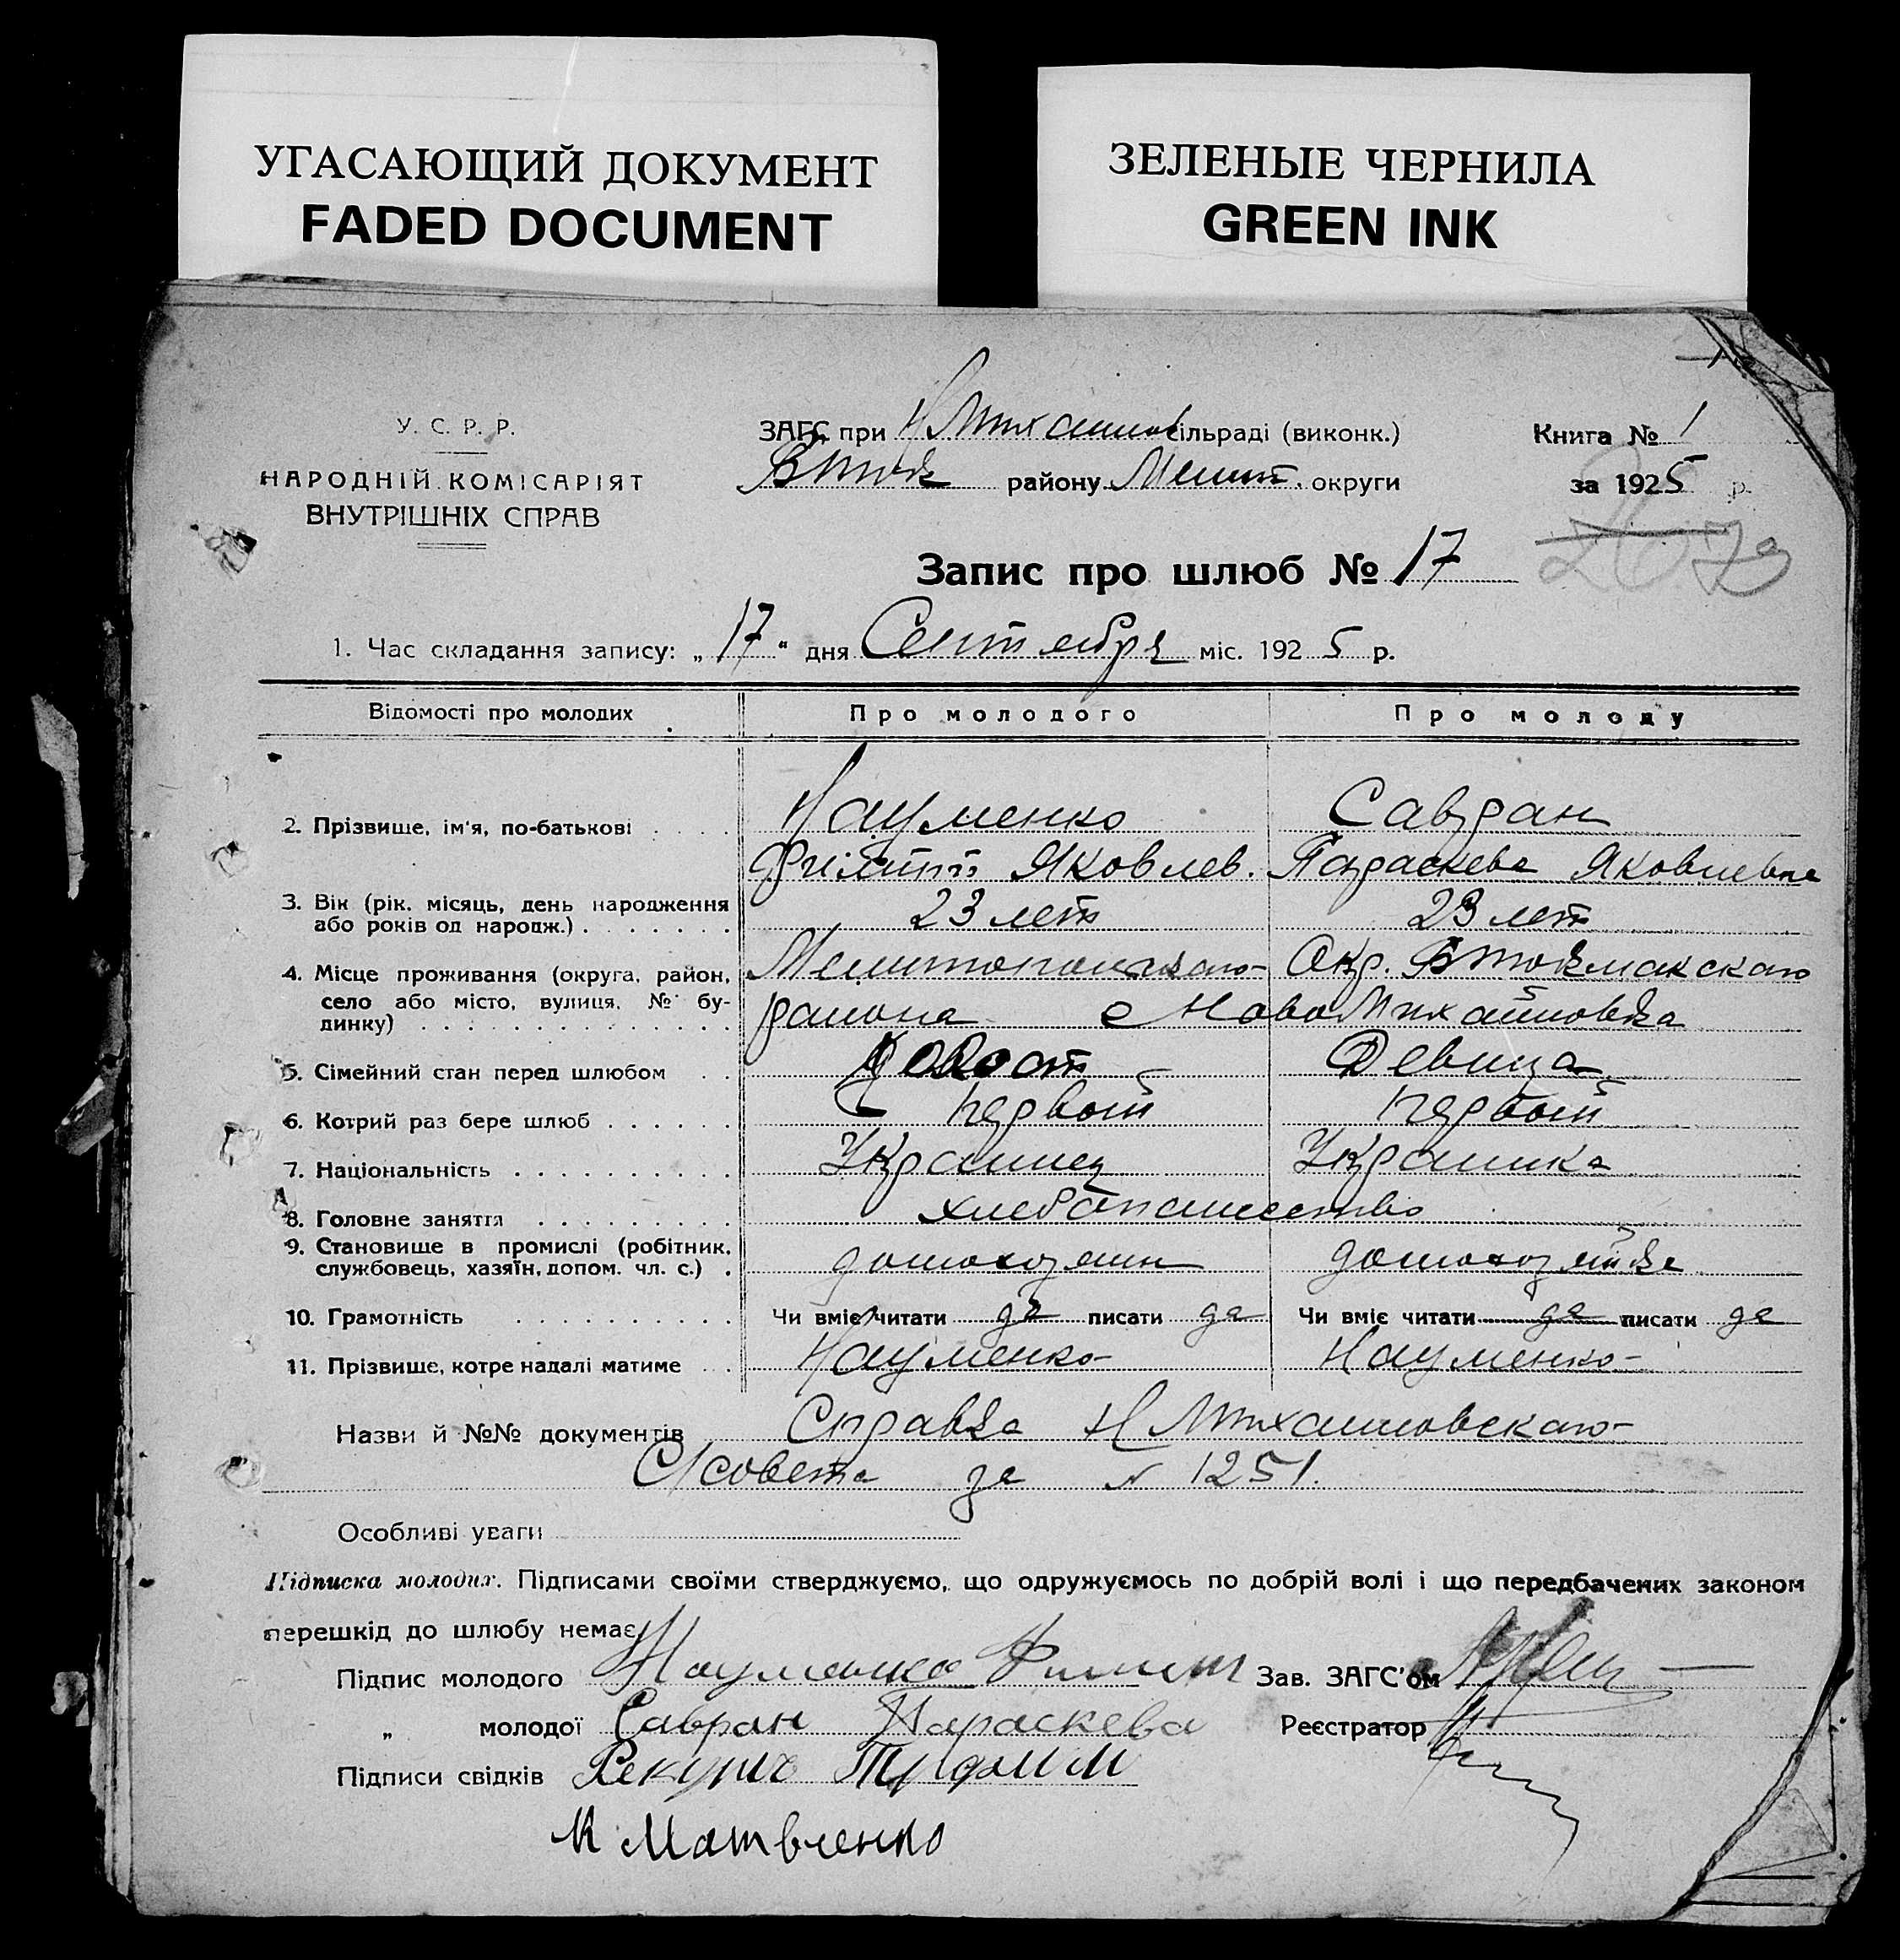 УГАСАЮЩИЙ ДОКУМЕНТ
FADED DOCUMENT
ЗЕЛЕНЫЕ ЧЕРНИЛА
GREEN INK
У. С. Р. Р.
НАРОДНІЙ КОМІСАРІЯТ
ВНУТРІШНІХ СПРАВ
ЗАГС при Н Михайлов сільраді (виконк.)
ВТок району Мелит. округи
Книга № 1
за 1925 р.
Запис про шлюб № 17
1. Час складання запису: „17“ дня Сентября міс. 1925 р.
Відомості про молодих Про молодого Про молоду
2. Прізвище, ім'я, по-батькові Науменко Савран
Филипп Яковлев. Параскева Яковлевна
3. Вік (рік, місяць, день народження
або років од народж.) 23 лет 23 лет
4. Місце проживання (округа, район, Мелитопольскаго Окр. ВТокмакскаго
село або місто, вулиця, № бу-
динку) района с НовоМихайловка
5. Сімейний стан перед шлюбом Холост Девица
6. Котрий раз бере шлюб первый первый
7. Національність Украинец Украинка
8. Головне заняття хлебопашество
9. Становище в промислі (робітник,
службовець, хазяїн, допом. чл. с.) домохозяин домохозяйка
10. Грамотність Чи вміє читати да писати да Чи вміє читати да писати да
11. Прізвище, котре надалі матиме Науменко Науменко
Назви й №№ документів Справка Н Михайловскаго
С/совета за № 1251.
Особливі уваги
Підписка молодих. Підписами своїми стверджуємо, що одружуємось по добрій волі і що передбачених законом
перешкід до шлюбу немає.
Підпис молодого Науменко Филип Зав. ЗАГС'ом
„ молодої Савран Параскева Реєстратор
Підписи свідків
К Матвиенко